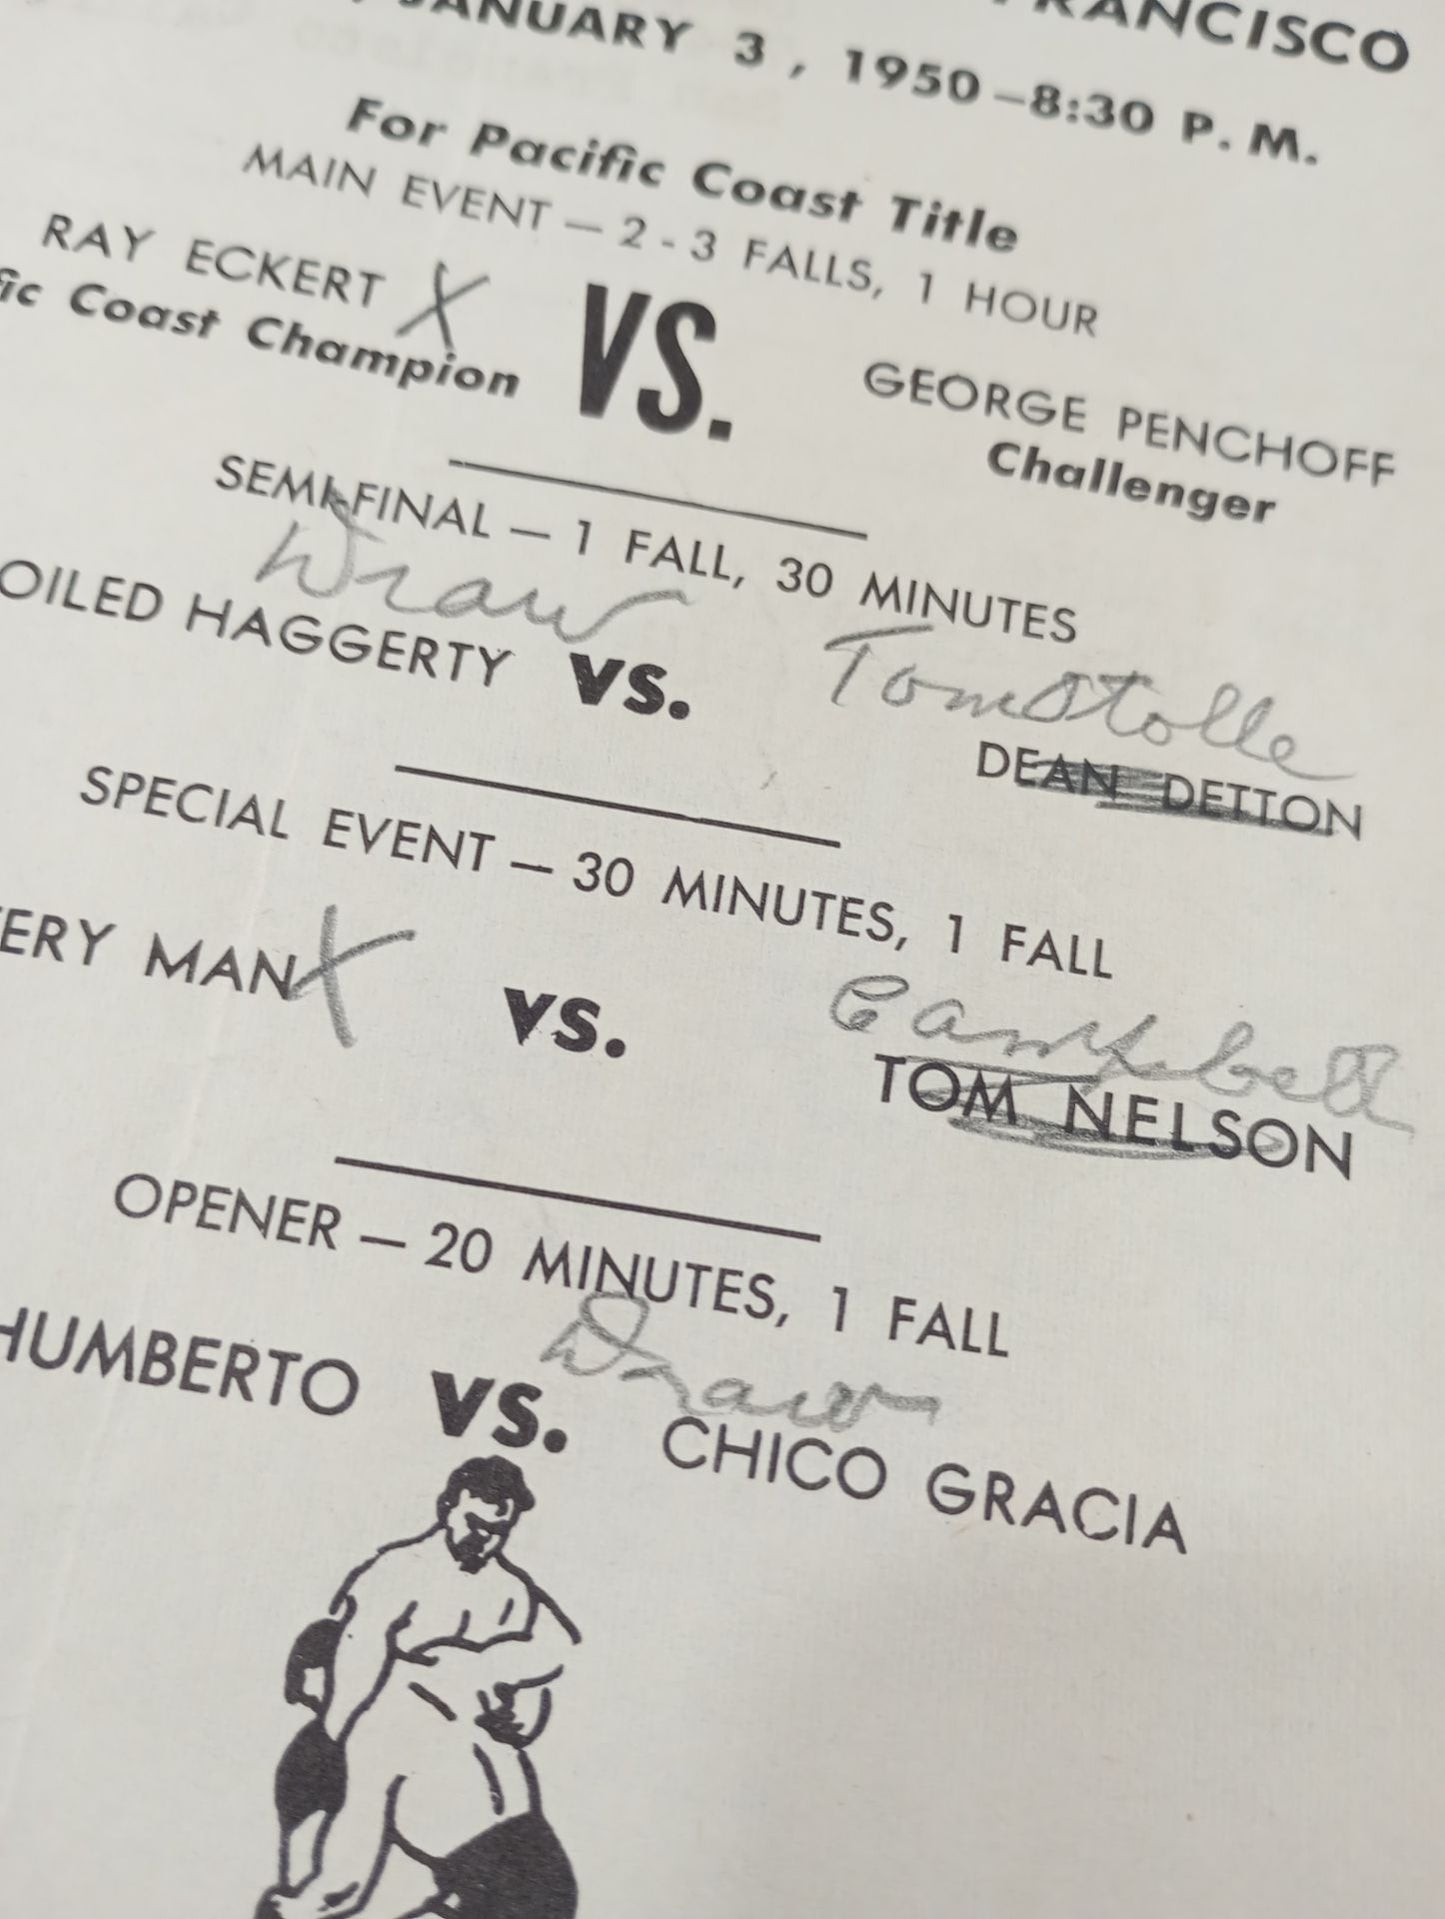 FRANCISCO
JANUARY 3, 1950–8:30 P. M.
For Pacific Coast Title
MAIN EVENT — 2 - 3 FALLS, 1 HOUR
RAY ECKERT X VS. GEORGE PENCHOFF
ic Coast Champion Challenger
SEMI-FINAL — 1 FALL, 30 MINUTES
Draw Tom Stolle
OILED HAGGERTY VS. DEAN DETTON
SPECIAL EVENT — 30 MINUTES, 1 FALL
Campbell
ERY MAN X VS. TOM NELSON
OPENER — 20 MINUTES, 1 FALL
Draw
HUMBERTO VS. CHICO GRACIA